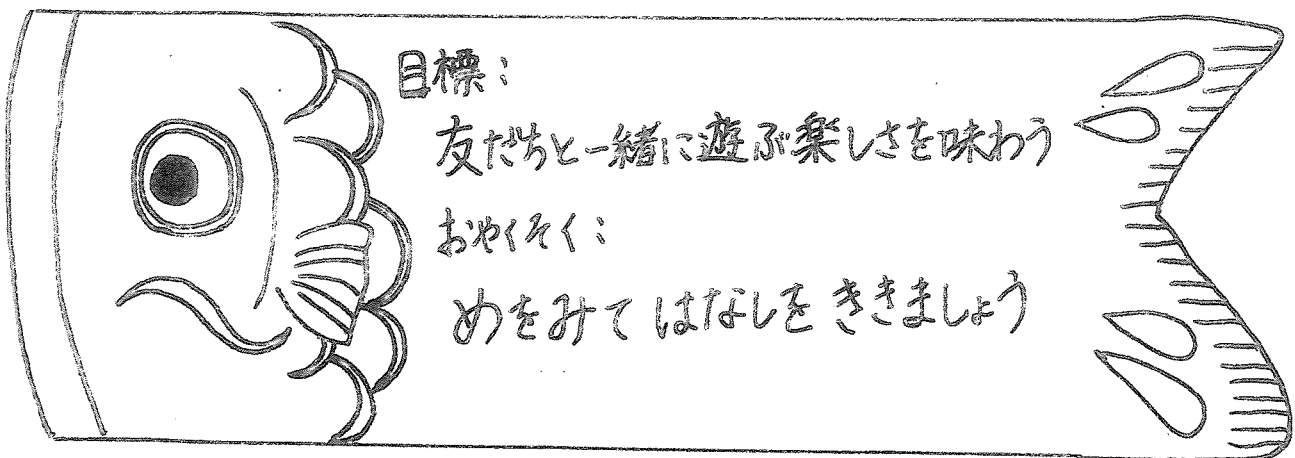 目標：
友だちと一緒に遊ぶ楽しさを味わう
おやくそく：
めをみて はなしを ききましょう